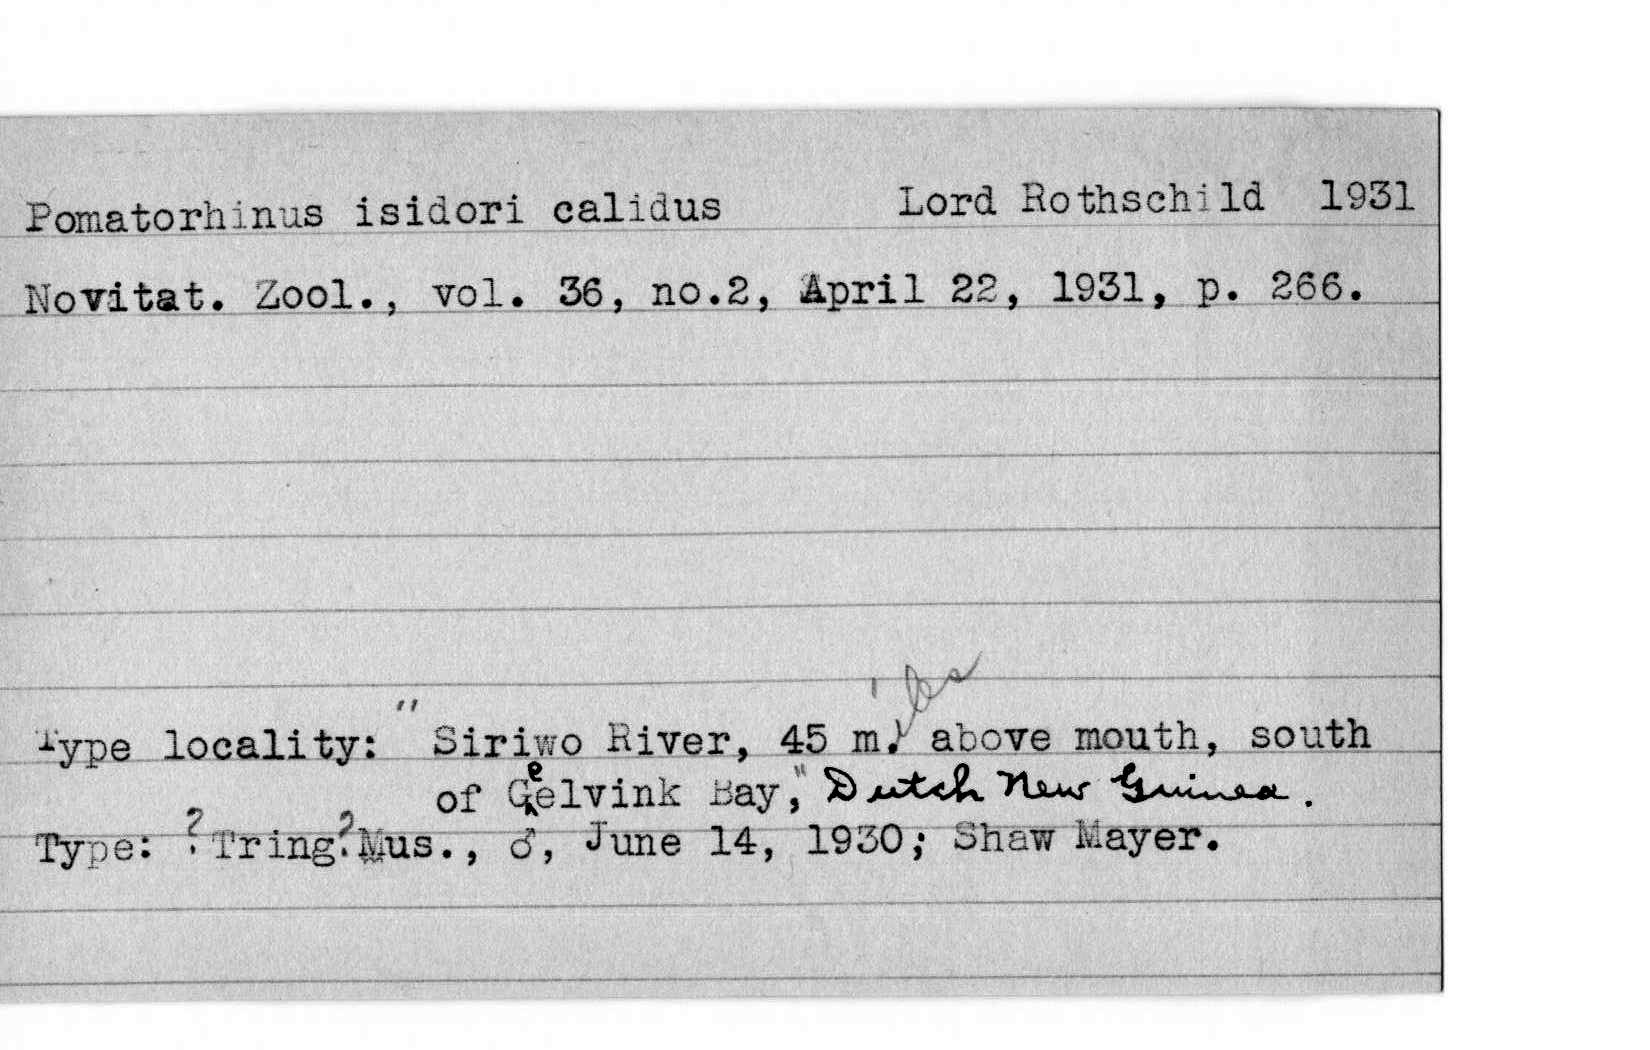 Pomatorhinus isidori calidus Lord Rothschild 1931
Novitat. Zool., vol. 36, no.2, April 22, 1931, p. 266.
Type locality: "Siriwo River, 45 miles above mouth, south
of Geelvink Bay," Dutch New Guinea.
Type: ?Tring? Mus., ♂, June 14, 1930; Shaw Mayer.